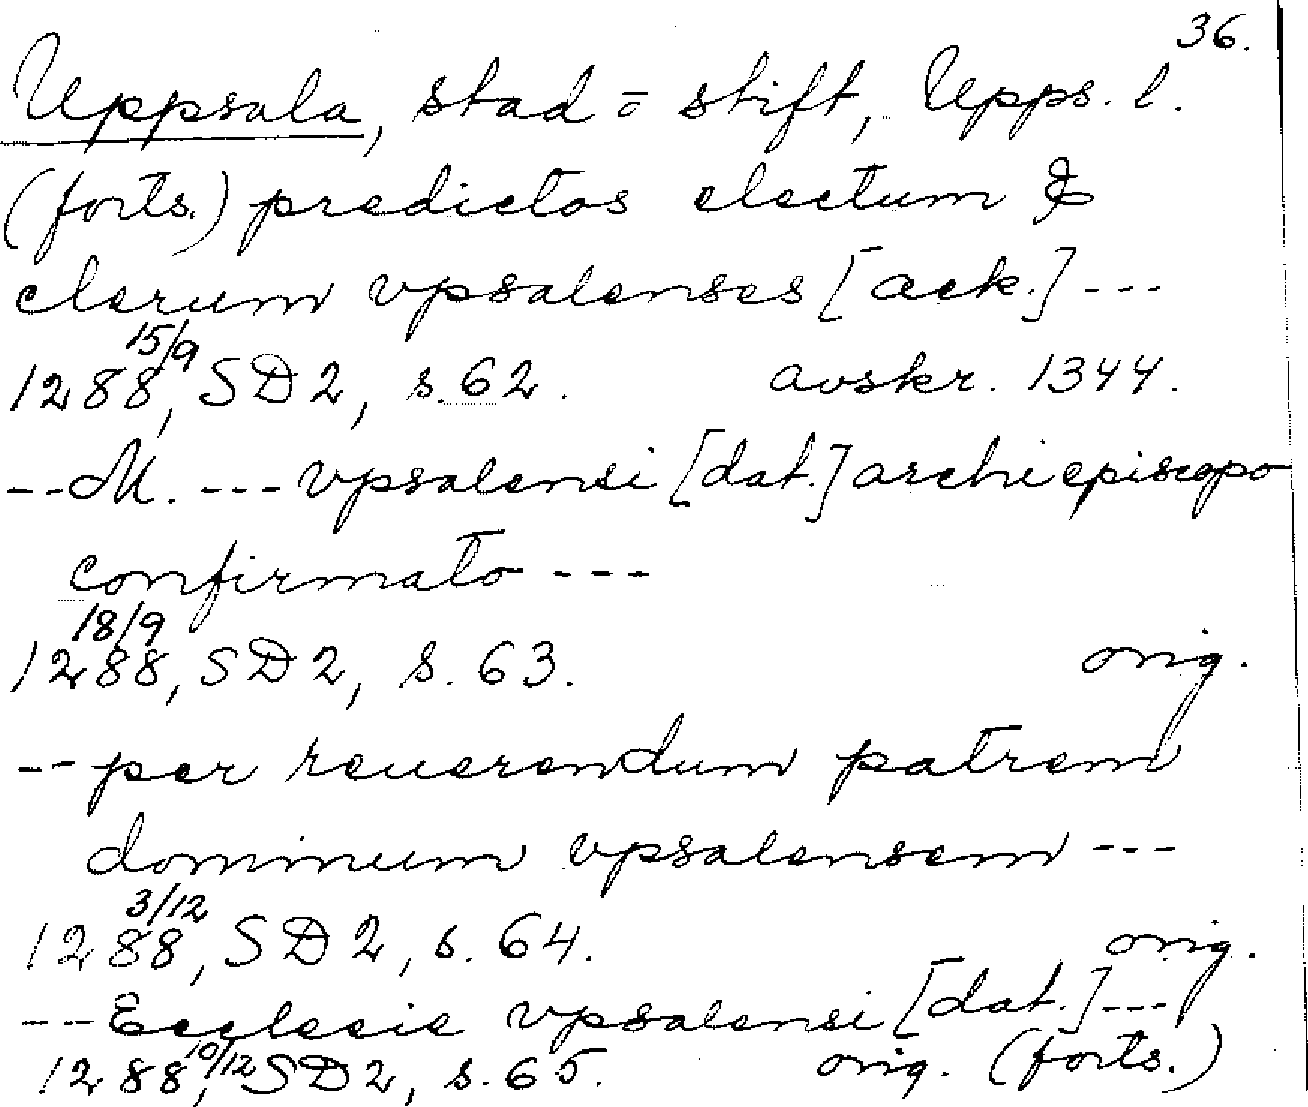 36.
Uppsala, stad o stift, Upps. l.
(forts.) predictos electum &
clerum vpsalenses [ack.] ---
15/9
1288, SD 2, s. 62. avskr. 1344.
-- M. --- vpsalensi [dat.] archiepiscopo
confirmato ---
18/9
1288, SD 2, s. 63. orig.
-- per reuerendum patrem
dominum vpsalensem ---
3/12
1288, SD 2, s. 64. orig.
-- Ecclesie vpsalensi [dat.] ---
10/12
1288, SD 2, s. 65. orig. (forts.)